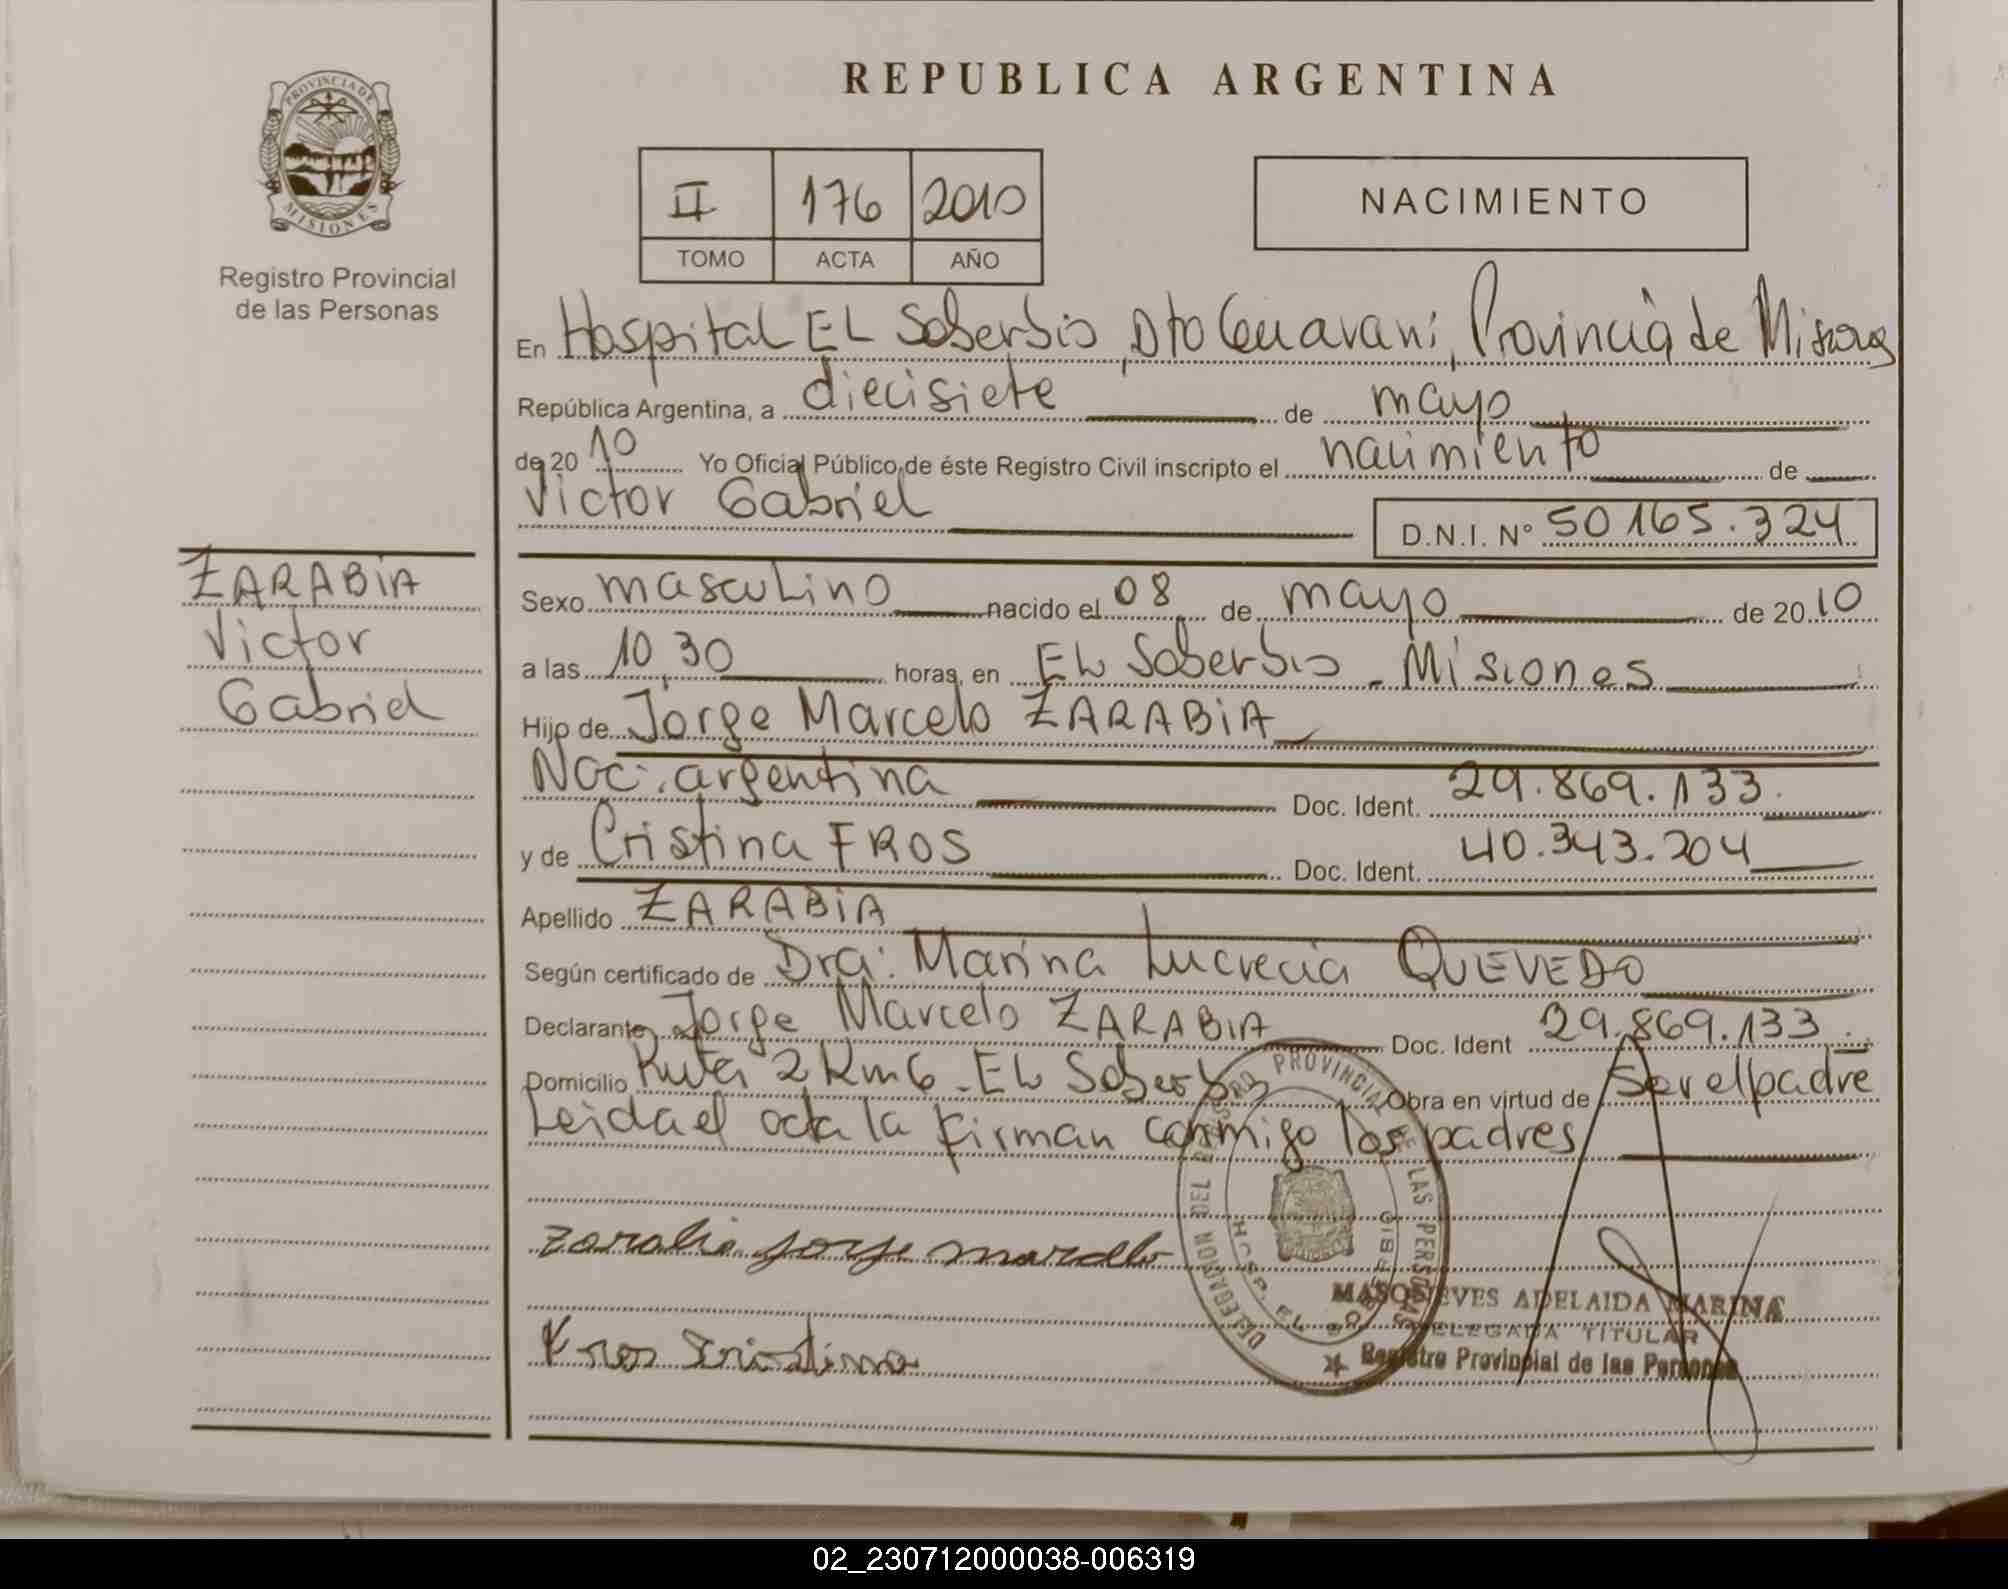 REPUBLICA ARGENTINA
PROVINCIA DE MISIONES
Registro Provincial
de las Personas
II 176 2010
TOMO ACTA AÑO
NACIMIENTO
En Hospital EL Soberbio, Dto Guarani, Provincia de Misiones
República Argentina, a diecisiete de mayo
de 2010 Yo Oficial Público de éste Registro Civil inscripto el nacimiento de
Victor Gabriel
D.N.I. N° 50165.324
ZARABIA
Victor
Gabriel
Sexo masculino nacido el 08 de mayo de 2010
a las 10,30 horas, en EL Soberbio - Misiones
Hijo de Jorge Marcelo ZARABIA
Nac: argentina Doc. Ident. 29.869.133.
y de Cristina FROS Doc. Ident. 40.343.204
Apellido ZARABIA
Según certificado de Dra: Marina Lucrecia QUEVEDO
Declarante Jorge Marcelo ZARABIA Doc. Ident 29.869.133.
Domicilio Ruta 2 Km 6 - EL Soberbio Obra en virtud de ser el padre
Leida el acta la firman conmigo los padres
zarabia jorge marcelo
Fros Cristina
DELEGACION DEL REGISTRO PROVINCIAL DE LAS PERSONAS
HOSP. EL SOBERBIO
ADELAIDA MARINA
DELEGADA TITULAR
Registro Provincial de las Personas
02_230712000038-006319